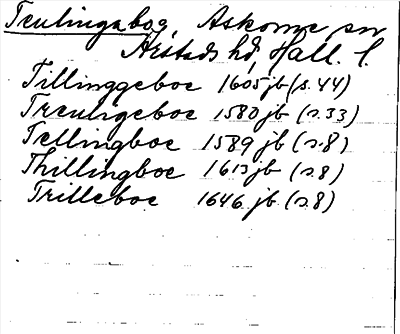 Tenlingabog, Askome sn
Årstads hd, Hall. l.
Tillinggeboe 1605 jb (s. 44)
Trenligeboe 1580 jb (s. 33)
Tellingboe 1589 jb (s. 8)
Thillingboe 1613 jb (s. 8)
Trilleboe 1646 jb (s. 8)